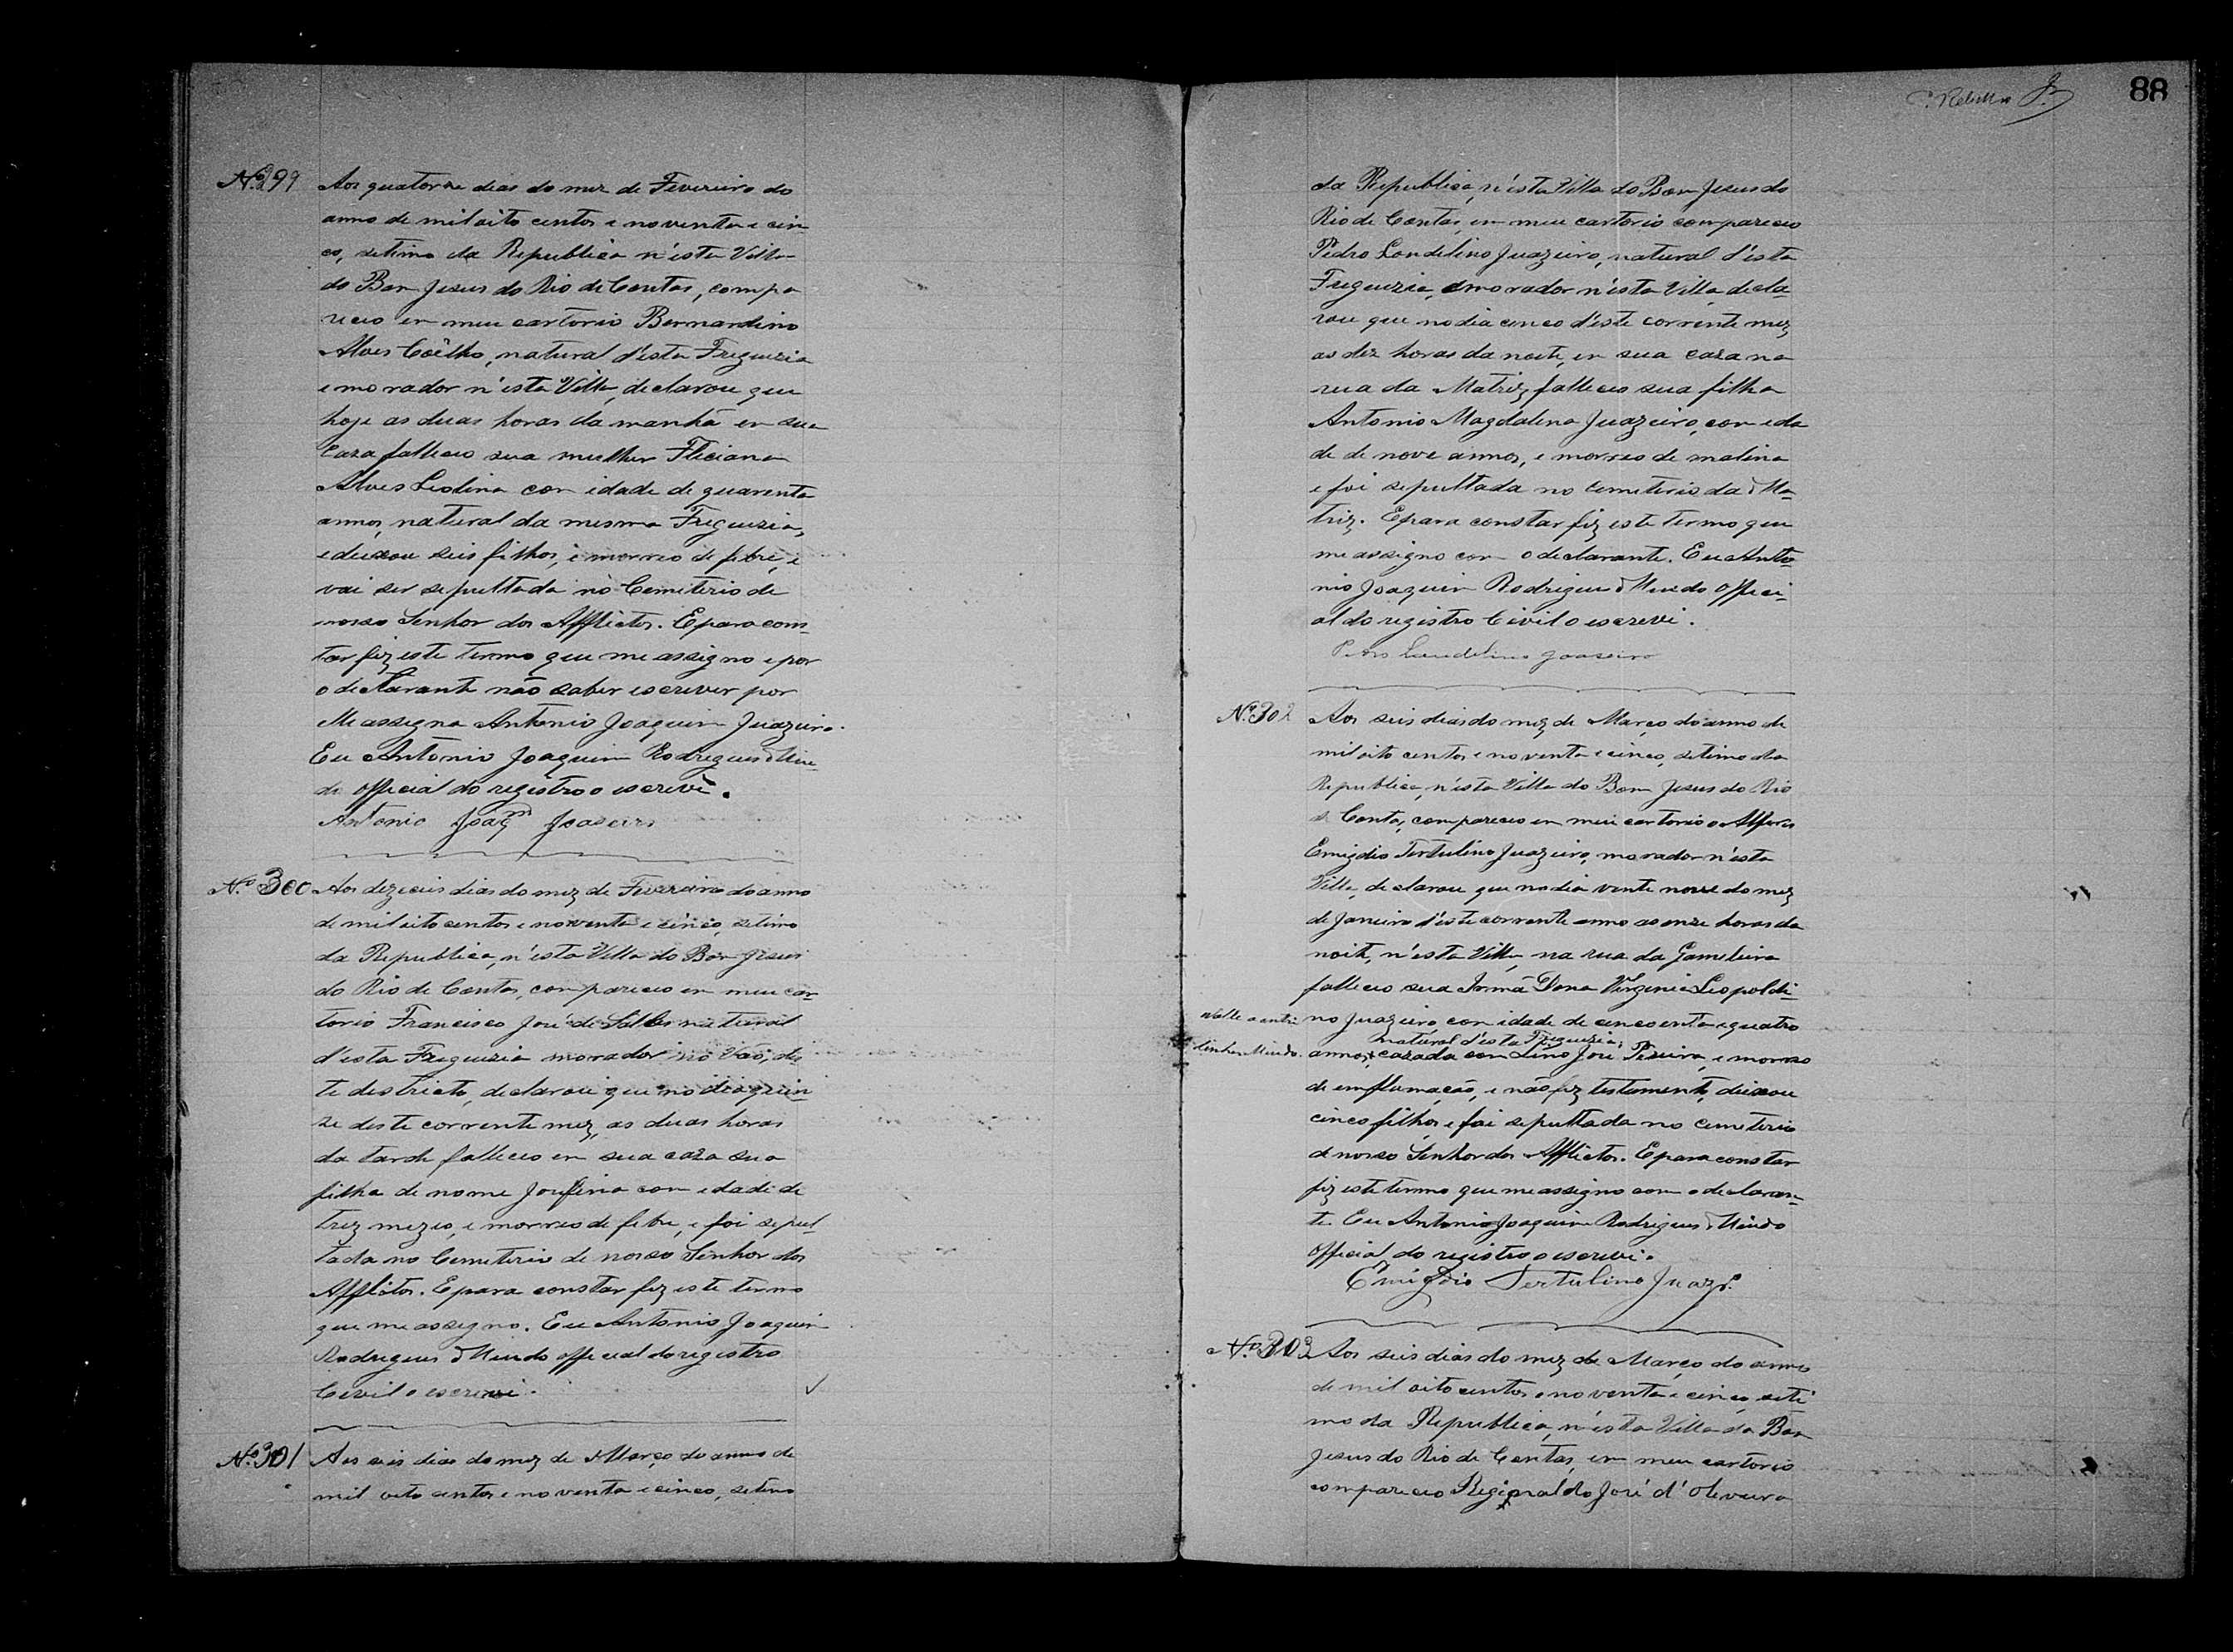 Nº 299
Aos quatorze dias do mez de Fevereiro do
anno de mil oito centos e noventa e cin
co, setimo da Republica n'esta Villa
do Bom Jesus do Rio de Contas, compa
receo em meu cartorio Bernardino
Alves Coêlho, natural d'esta Freguezia
e morador n'esta Villa, declarou que
hoje as duas horas da manhã em sua
Caza falleceo sua mulher Fliciana
Alves Leolina com idade de quarenta
annos, natural da mesma Freguezia,
e deixou seis filhos, e morreo de febre, e
vai ser sepultada no Cemiterio de
nosso Senhor dos Afflictos. E para cons
tar fiz este termo que me assigno e por
o declarante não saber escrever por
Me assigna Antonio Joaquim Juazeiro.
Eu Antonio Joaquim Rodrigues
official do registro o escrevi.
Antonio Joaqm Joaseiro
Nº 300
Aos dezeceis dias do mez de Fivereiro do anno
de mil oito centos e noventa e cinco, setimo
da Republica, n'esta Villa do Bom Jesus
do Rio de Contas, compareceo em meu car
torio Francisco José de Salles natural
d'esta Freguezia morador no Vão, des
te destricto, declarou que no dia quin
ze deste corrente mez, as duas horas
da tarde falleceo em sua caza sua
filha de nome Joufina com idade de
trez mezes, e morreo de febre, e foi sepul
tada no Cemiterio de nosso Senhor dos
Afflitos. E para constar fiz este termo
que me assigno. Eu Antonio Joaquim
Rodrigues official do registro
Civil o escrevi.
Nº 301
Aos seis dias do mez de Março do anno de
mil oito centos e noventa e cinco, setimo
88
da Republica, n'esta Villa do Bom Jesus do
Rio de Contas, em meu cartorio compareceo
Pedro Landelino Juazeiro, natural d'esta
Freguezia, e morador n'esta Villa, decla-
rou que no dia cinco d'este corrente mez
as dez horas da noite, em sua caza na
rua da Matriz, falleceo sua filha
Antonia Magdalena Juazeiro, com ida
de de nove annos, e morreo de malina
e foi sepultada no Cemiterio da Ma-
triz. E para constar fiz este termo que
me assigno com o declarante. Eu Anto-
nio Joaquim Rodrigues offici-
al do registro Civil o escrevi.
Pedro Laudelino Joaseiro
Nº 302
Aos seis dias do mez de Março do anno de
mil oito centos e noventa e cinco, setimo da
Republica, n'esta Villa do Bom Jesus do Rio
de Contas, compareceo em meu cartorio o Alferes
Emigdio Tertulino Juazeiro, morador n'esta
Villa, declarou que no dia vente nove do mez
de Janeiro d'este corrente anno as onze horas da
noite, n'esta Villa, na rua da Gameleira
falleceo sua Irmã Dona Virginia Leopoldi-
na Juazeiro, com idade de cincoenta e quatro
Valle a entre
natural d'esta Freguezia,
linha
annos, cazada com Lino José Pereira, e morreo
de emflamação, e não fez testamento, deixou
cinco filhos, e foi sepultada no Cemiterio
de nosso Senhor dos Afflictos. E para constar
fiz este termo que me assigno com o declaran-
te. Eu Antonio Joaquim Rodrigues
official do registro o escrevi.
Emigdio Tertulino Juazrº
Nº 303
Aos seis dias do mez de Março do anno
de mil oito centos e noventa e cinco, seti
mo da Republica, n'esta Villa do Bom
Jesus do Rio de Contas, em meu cartorio
compareceo Reginaldo José d'Oliveira